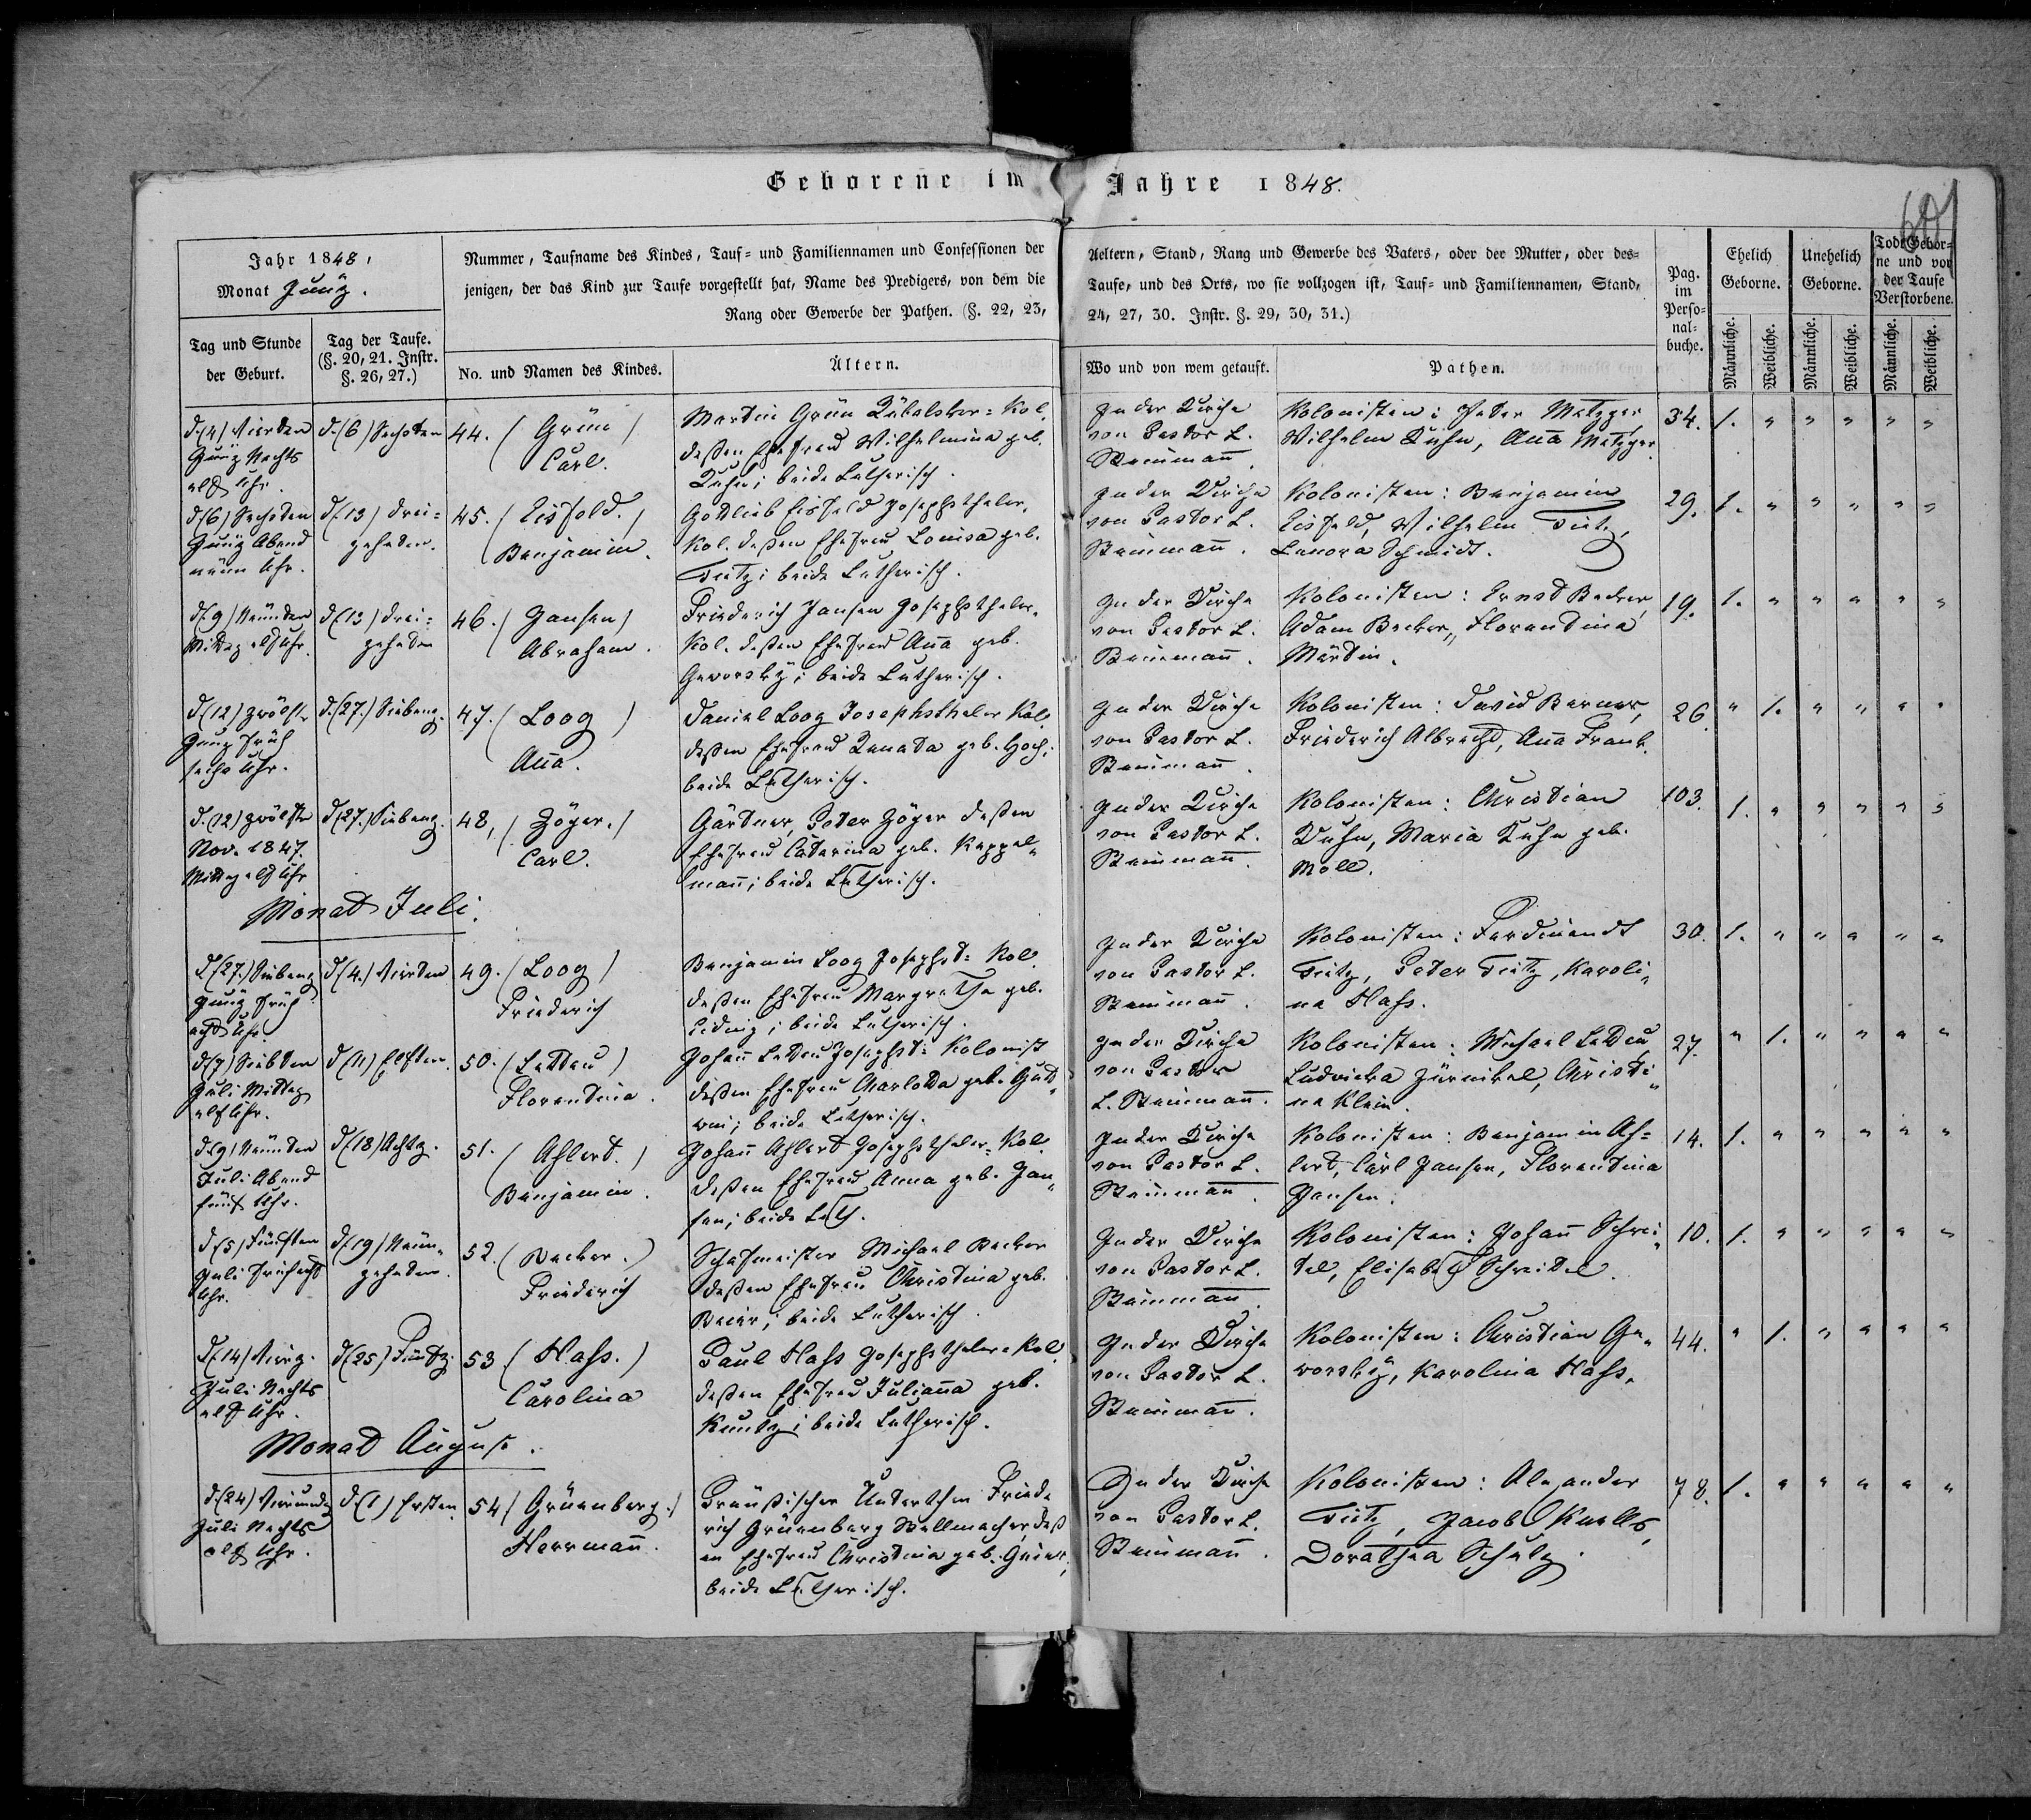 Geborene im Jahre 1848.
601
Jahr 1848,
Monat Juny.
Nummer, Taufname des Kindes, Tauf- und Familiennamen und Confessionen der Aeltern, Stand, Rang und Gewerbe des Vaters, oder der Mutter, oder des-
jenigen, der das Kind zur Taufe vorgestellt hat, Name des Predigers, von dem die Taufe, und des Orts, wo sie vollzogen ist, Tauf- und Familiennamen, Stand,
Rang oder Gewerbe der Pathen. (§. 22, 23, 24, 27, 30. Instr. §. 29, 30, 31.)
Tag und Stunde
der Geburt.
Tag der Taufe.
(§. 20, 21. Instr.
§. 26, 27.)
No. und Namen des Kindes.
Ältern.
Wo und von wem getauft.
Pathen.
Pag.
im
Perso-
nal-
buche.
Ehelich
Geborne.
Unehelich
Geborne.
Todt Gebor-
ne und vor
der Taufe
Verstorbene.
Männliche.
Weibliche.
Männliche.
Weibliche.
Männliche.
Weibliche.
d. (4) Vierten
Juny Nachts
elf Uhr.
d. (6) Sechsten
44. (Grün)
Carl.
Martin Grün Kol.
deßen Ehefrau Wilhelmina geb.
Kuhn; beide Lutherisch.
In der Kirche
von Pastor L.
Steinmann.
Kolonisten: Peter Metzger,
Wilhelm Kuhn, Anna Metzger.
34. 1. " " " " "
d. (6) Sechsten
Juny Abend
neun Uhr.
d. (13) drei-
zehnten.
45. (Eisfeld.)
Benjamin.
Gottlieb Eisfeld Josephsthaler,
Kol. deßen Ehefrau Louisa geb.
Tietz; beide Lutherisch.
In der Kirche
von Pastor L.
Steinmann.
Kolonisten: Benjamin
Eisfeld, Wilhelm Tietz,
Lenora Schmidt.
29. 1. " " " " "
d. (9) Neunten
Mittag elf Uhr.
d. (13) drei-
zehnten
46. (Jansen)
Abraham.
Friederich Jansen Josephsthaler,
Kol. deßen Ehefrau Anna geb.
Geworsky; beide Lutherisch.
In der Kirche
von Pastor L.
Steinmann.
Kolonisten: Ernst Becker,
Adam Becker, Florentina
Martin.
19. 1. " " " " "
d. (12) zwölft.
Juny Früh
sechs Uhr.
d. (27.) Siebenz.
47. (Loog)
Anna.
Daniel Loog Josephsthaler Kol.
deßen Ehefrau Renata geb. Hoch;
beide Lutherisch.
In der Kirche
von Pastor L.
Steinmann.
Kolonisten: David Berner,
Friederich Albrecht, Anna Frank.
26. " 1. " " " "
d. (12) zwölften
Nov. 1847.
Mittag elf Uhr
d. (27.) Siebenz.
48. (Zöger.)
Carl.
Gärtner, Peter Zöger deßen
Ehefrau Catarina geb. Keppel-
mann; beide Lutherisch.
In der Kirche
von Pastor L.
Steinmann.
Kolonisten: Christian
Kuhn, Maria Kuhn geb.
Moll.
103. 1. " " " " "
Monat Juli.
d. (27.) Siebenz
Juny Früh
acht Uhr.
d. (4.) Vierten
49. (Loog)
Friederich
Benjamin Loog Josephst: Kol.
deßen Ehefrau Margretha geb.
Lidwig; beide Lutherisch.
In der Kirche
von Pastor L.
Steinmann.
Kolonisten: Ferdinandt
Tietz, Peter Tietz, Karoli-
na Hass.
30. 1. " " " " "
d. (7) Siebten
Juli Mittag
elf Uhr.
d. (11) Elften.
50. (Lettau)
Florentina.
Johann Lettau Josephst: Kolonist
deßen Ehefrau Charlotta geb. Gut-
win; beide Lutherisch.
In der Kirche
von Pastor
L. Steinmann.
Kolonisten: Michael Lettau,
Ludwicka Zürnikel, Christi-
na Klein.
27. " 1. " " " "
d. (9) Neunten
Juli Abend
fünf Uhr.
d. (18) Achtz.
51. (Ahlert.)
Benjamin.
Johann Ahlert Josephsthaler Kol.
deßen Ehefrau Anna geb. Jan-
sen; beide Luth.
In der Kirche
von Pastor L.
Steinmann.
Kolonisten: Benjamin Ah-
lert, Carl Jansen, Florentina
Jansen.
14. 1. " " " " "
d. (5) Fünften
Juli Früh acht
Uhr.
d. (19) Neun-
zehnten.
52. (Becker.)
Friederich
Schafmeister Michael Becker
deßen Ehefrau Christina geb.
Beier; beide Lutherisch.
In der Kirche
von Pastor L.
Steinmann.
Kolonisten: Johann Schrei-
tel, Elisabeth Schreitel.
10. 1. " " " " "
d. (14) Vierz.
Juli Nachts
elf Uhr.
d. (25) Fünfz.
53 (Hass.)
Carolina
Paul Hass Josephsthaler Kol.
deßen Ehefrau Julianna geb.
Kuntz; beide Lutherisch.
In der Kirche
von Pastor L.
Steinmann.
Kolonisten: Christian Ge-
worsky, Karolina Hass.
44. " 1. " " " "
Monat August.
d. (24) Vierundz
Juli Nachts
elf Uhr.
d. (1) Ersten
54 (Grüenberg.)
Herrmann.
Preußischer Unterthan Friede
rich Grüenberg Stellmacher, deß
en Ehefrau Christina geb.
beide Lutherisch.
In der Kirche
von Pastor L.
Steinmann.
Kolonisten: Alexander
Tietz, Jacob Knells,
Dorathea Schulz.
78. 1. " " " " "